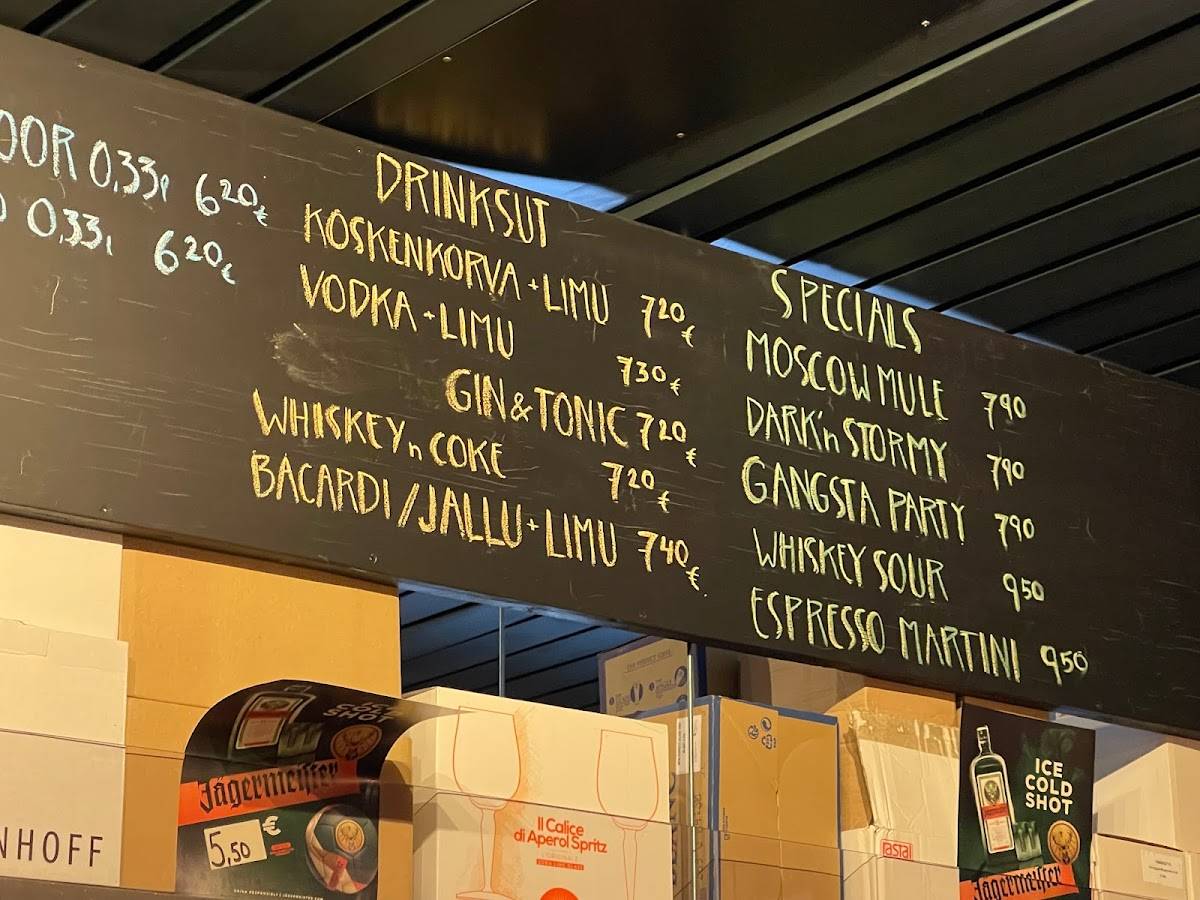 0,33l 6 20 €
0,33l 6 20 €
DRINKSUT
KOSKENKORVA + LIMU 7 20 €
VODKA + LIMU 7 30 €
GIN & TONIC 7 20 €
WHISKEY n COKE 7 20 €
BACARDI / JALLU + LIMU 7 40 €
SPECIALS
MOSCOW MULE 7 90
DARK'n STORMY 7 90
GANGSTA PARTY 7 90
WHISKEY SOUR 9 50
ESPRESSO MARTINI 9 50
COLD
SHOT
Jägermeister
5,50 €
NHOFF
Il Calice
di Aperol Spritz
rastal
ICE
COLD
SHOT
Jägermeister